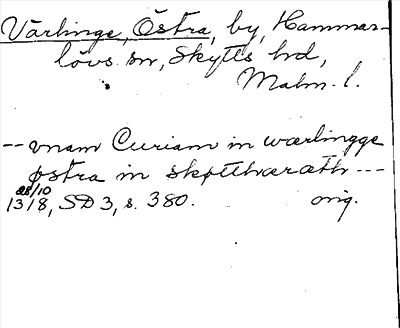 Värlinge, Östra, by, Hammar-
lövs sn, Skytts hd,
Malm. l.
-- vnam Curiam in wærlingge
østra in skøttheræth ---
28/10
1318, SD 3, s. 380. orig.